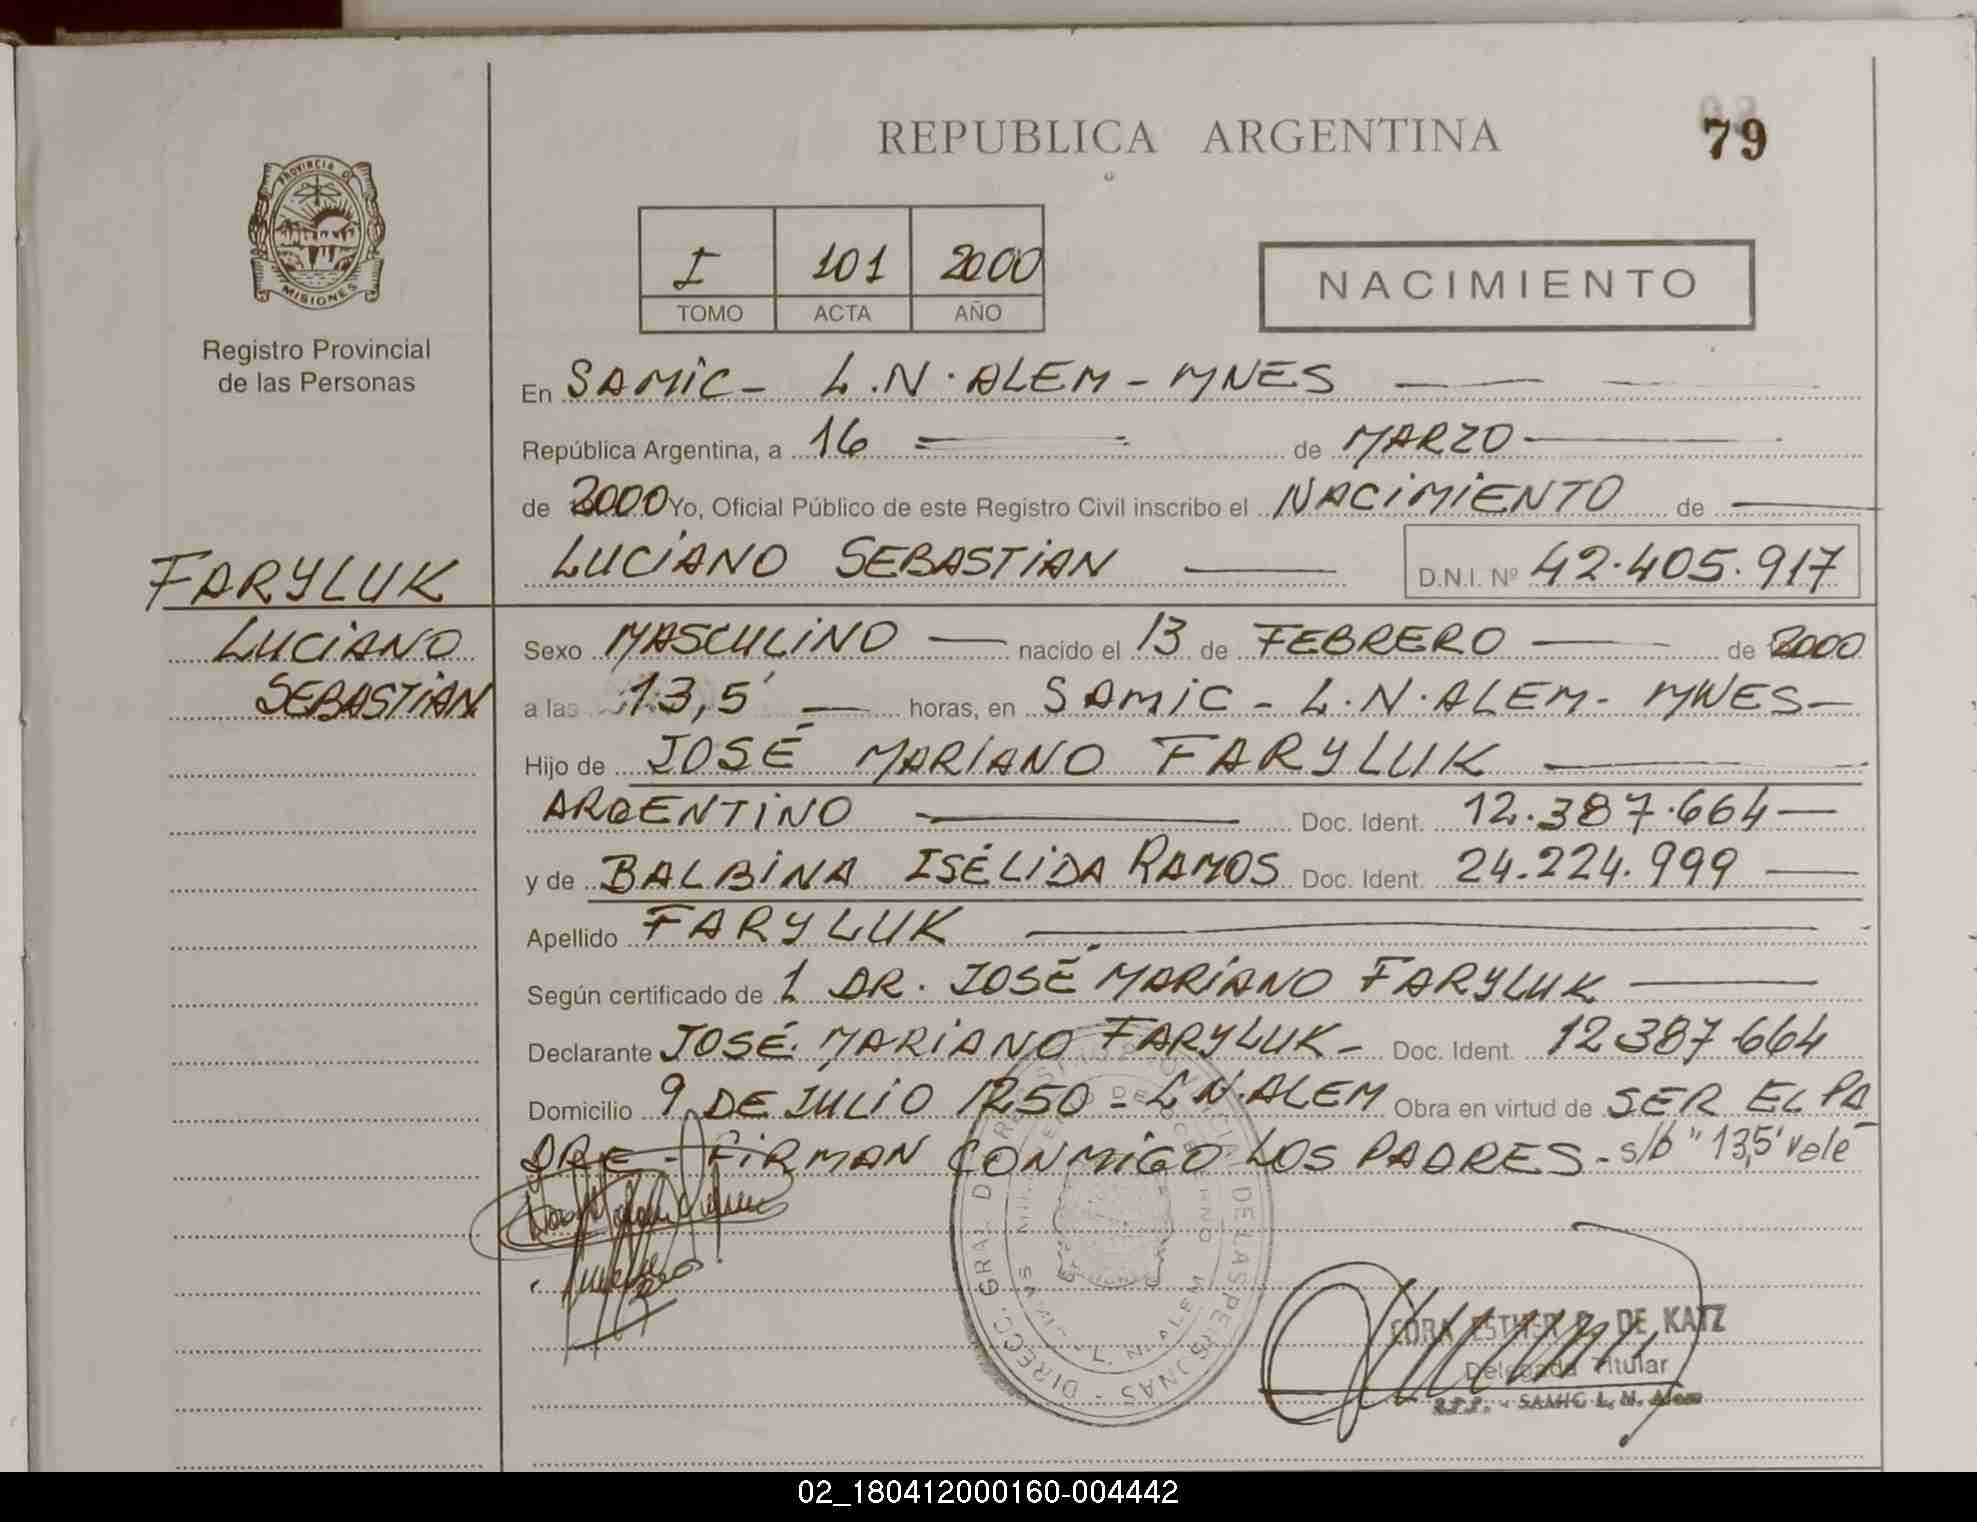 REPUBLICA ARGENTINA
79
PROVINCIA DE
MISIONES
Registro Provincial
de las Personas
I 101 2000
TOMO ACTA AÑO
NACIMIENTO
En SAMIC - L.N. ALEM - MNES
República Argentina, a 16 de MARZO
de 2000 Yo, Oficial Público de este Registro Civil inscribo el NACIMIENTO de
FARYLUK
LUCIANO
SEBASTIAN
LUCIANO SEBASTIAN D.N.I. Nº 42.405.917
Sexo MASCULINO nacido el 13 de FEBRERO de 2000
a las 13,5' horas, en SAMIC - L.N. ALEM - MNES -
Hijo de JOSÉ MARIANO FARYLUK
ARGENTINO Doc. Ident. 12.387.664
y de BALBINA ISÉLIDA RAMOS Doc. Ident. 24.224.999
Apellido FARYLUK
Según certificado de 1 DR. JOSÉ MARIANO FARYLUK
Declarante JOSÉ MARIANO FARYLUK - Doc. Ident. 12387.664
Domicilio 9 DE JULIO 1250 - L.N. ALEM Obra en virtud de SER EL PA
DRE - FIRMAN CONMIGO LOS PADRES - s/b "13,5' vale
DIRECC. GRAL. DE REGISTRO PROVINCIAL DE LAS PERSONAS
CORA ESTHER DE KATZ
Delegada Titular
R.P.P. - SAMIC L. N. Alem
02_180412000160-004442